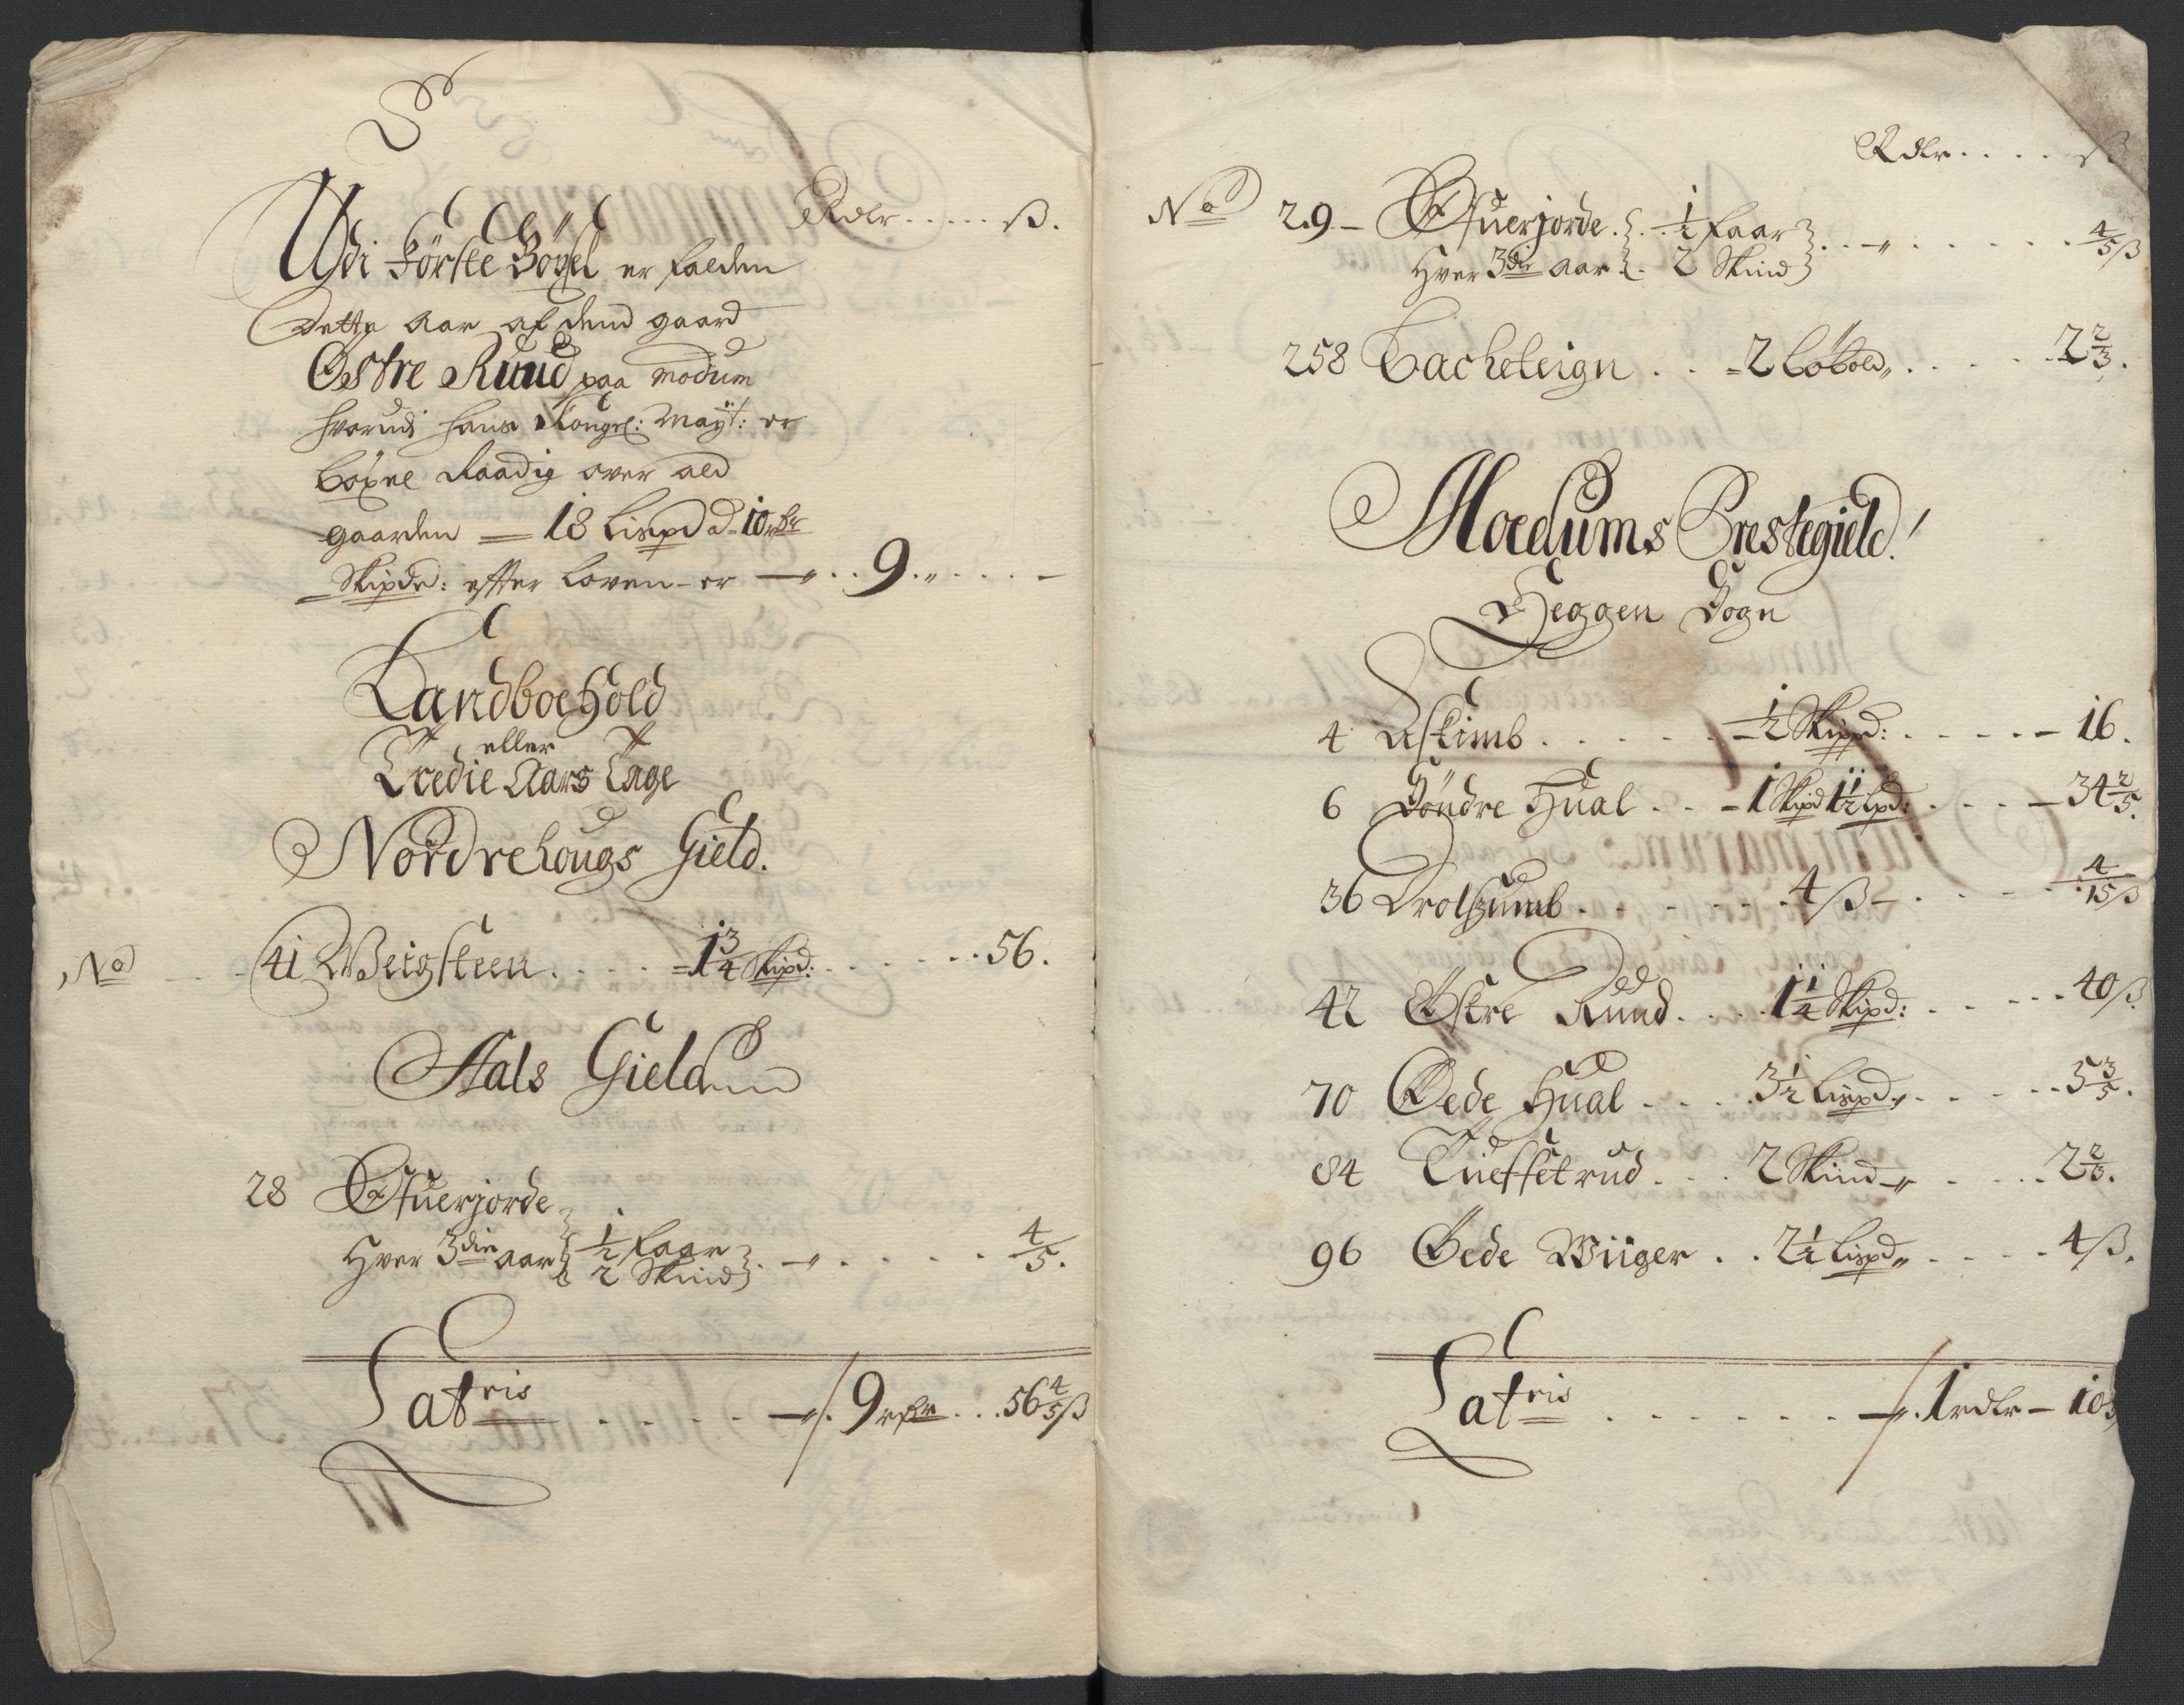 Rdlr ..... ß.
Udi Förste Böxel er falden
Dette Aar af dend gaard
Østre Ruud paa Modum
hvorudi hans Kongel: Mayt: er
böxel Raadig over ald
gaarden — 18 Lispd a 10 rdlr
Skipdr: effter Loven - er — .. 9 .. —
Landboehold
eller
Tredie Aars Tage
Nordrehougs Gield.
No 41 Weigsteen . . . . 1 3/4 Skipd: . . . . 56.
Aals Gield
28 Øfuerjorde
Hver 3die aar { 1/2 faar
2 Skind } . — . . . . 4/5.
Latris . . . . . — / . 9 rdlr . . . 56 4/5 ß
Rdlr . . . . ß
No 29 - Øfuerjorde . { . 1/2 faar } . . — . . . . . 4/5 ß
Hver 3die aar { . 2 Skind }
258 Bacheteign . . - 2 . . . . 2 2/3.
Moedums Prestegield!
Heggen Sogn
4 Askimb . . . . . - 1/2 Skippd: . . . . - 16.
6 Söndre Hual . . - 1 Skipd 1 1/2 Lpd: . . . - 34 2/5.
36 Drolszumb . . . . . 4 ß - . . . 4/15 ß
42 Østre Ruud . . . . 1 1/4 Skipd: . . . . 40 ß
70 Øede Hual . . . . 3 1/2 Lispd . . . . . 5 3/5.
84 Tueffetrud . . . 2 Skind — . . . . 2 2/3.
96 Øede Wiiger . . 2 1/2 Lispd . . . . 4 ß.
Latris . . . . . . . — . 1 rdlr — 10